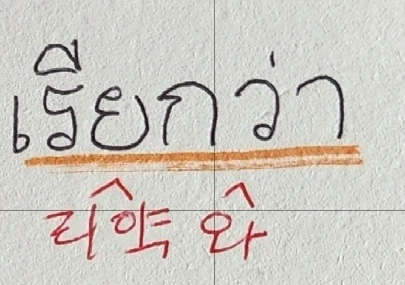 เรียกว่า
리약 와